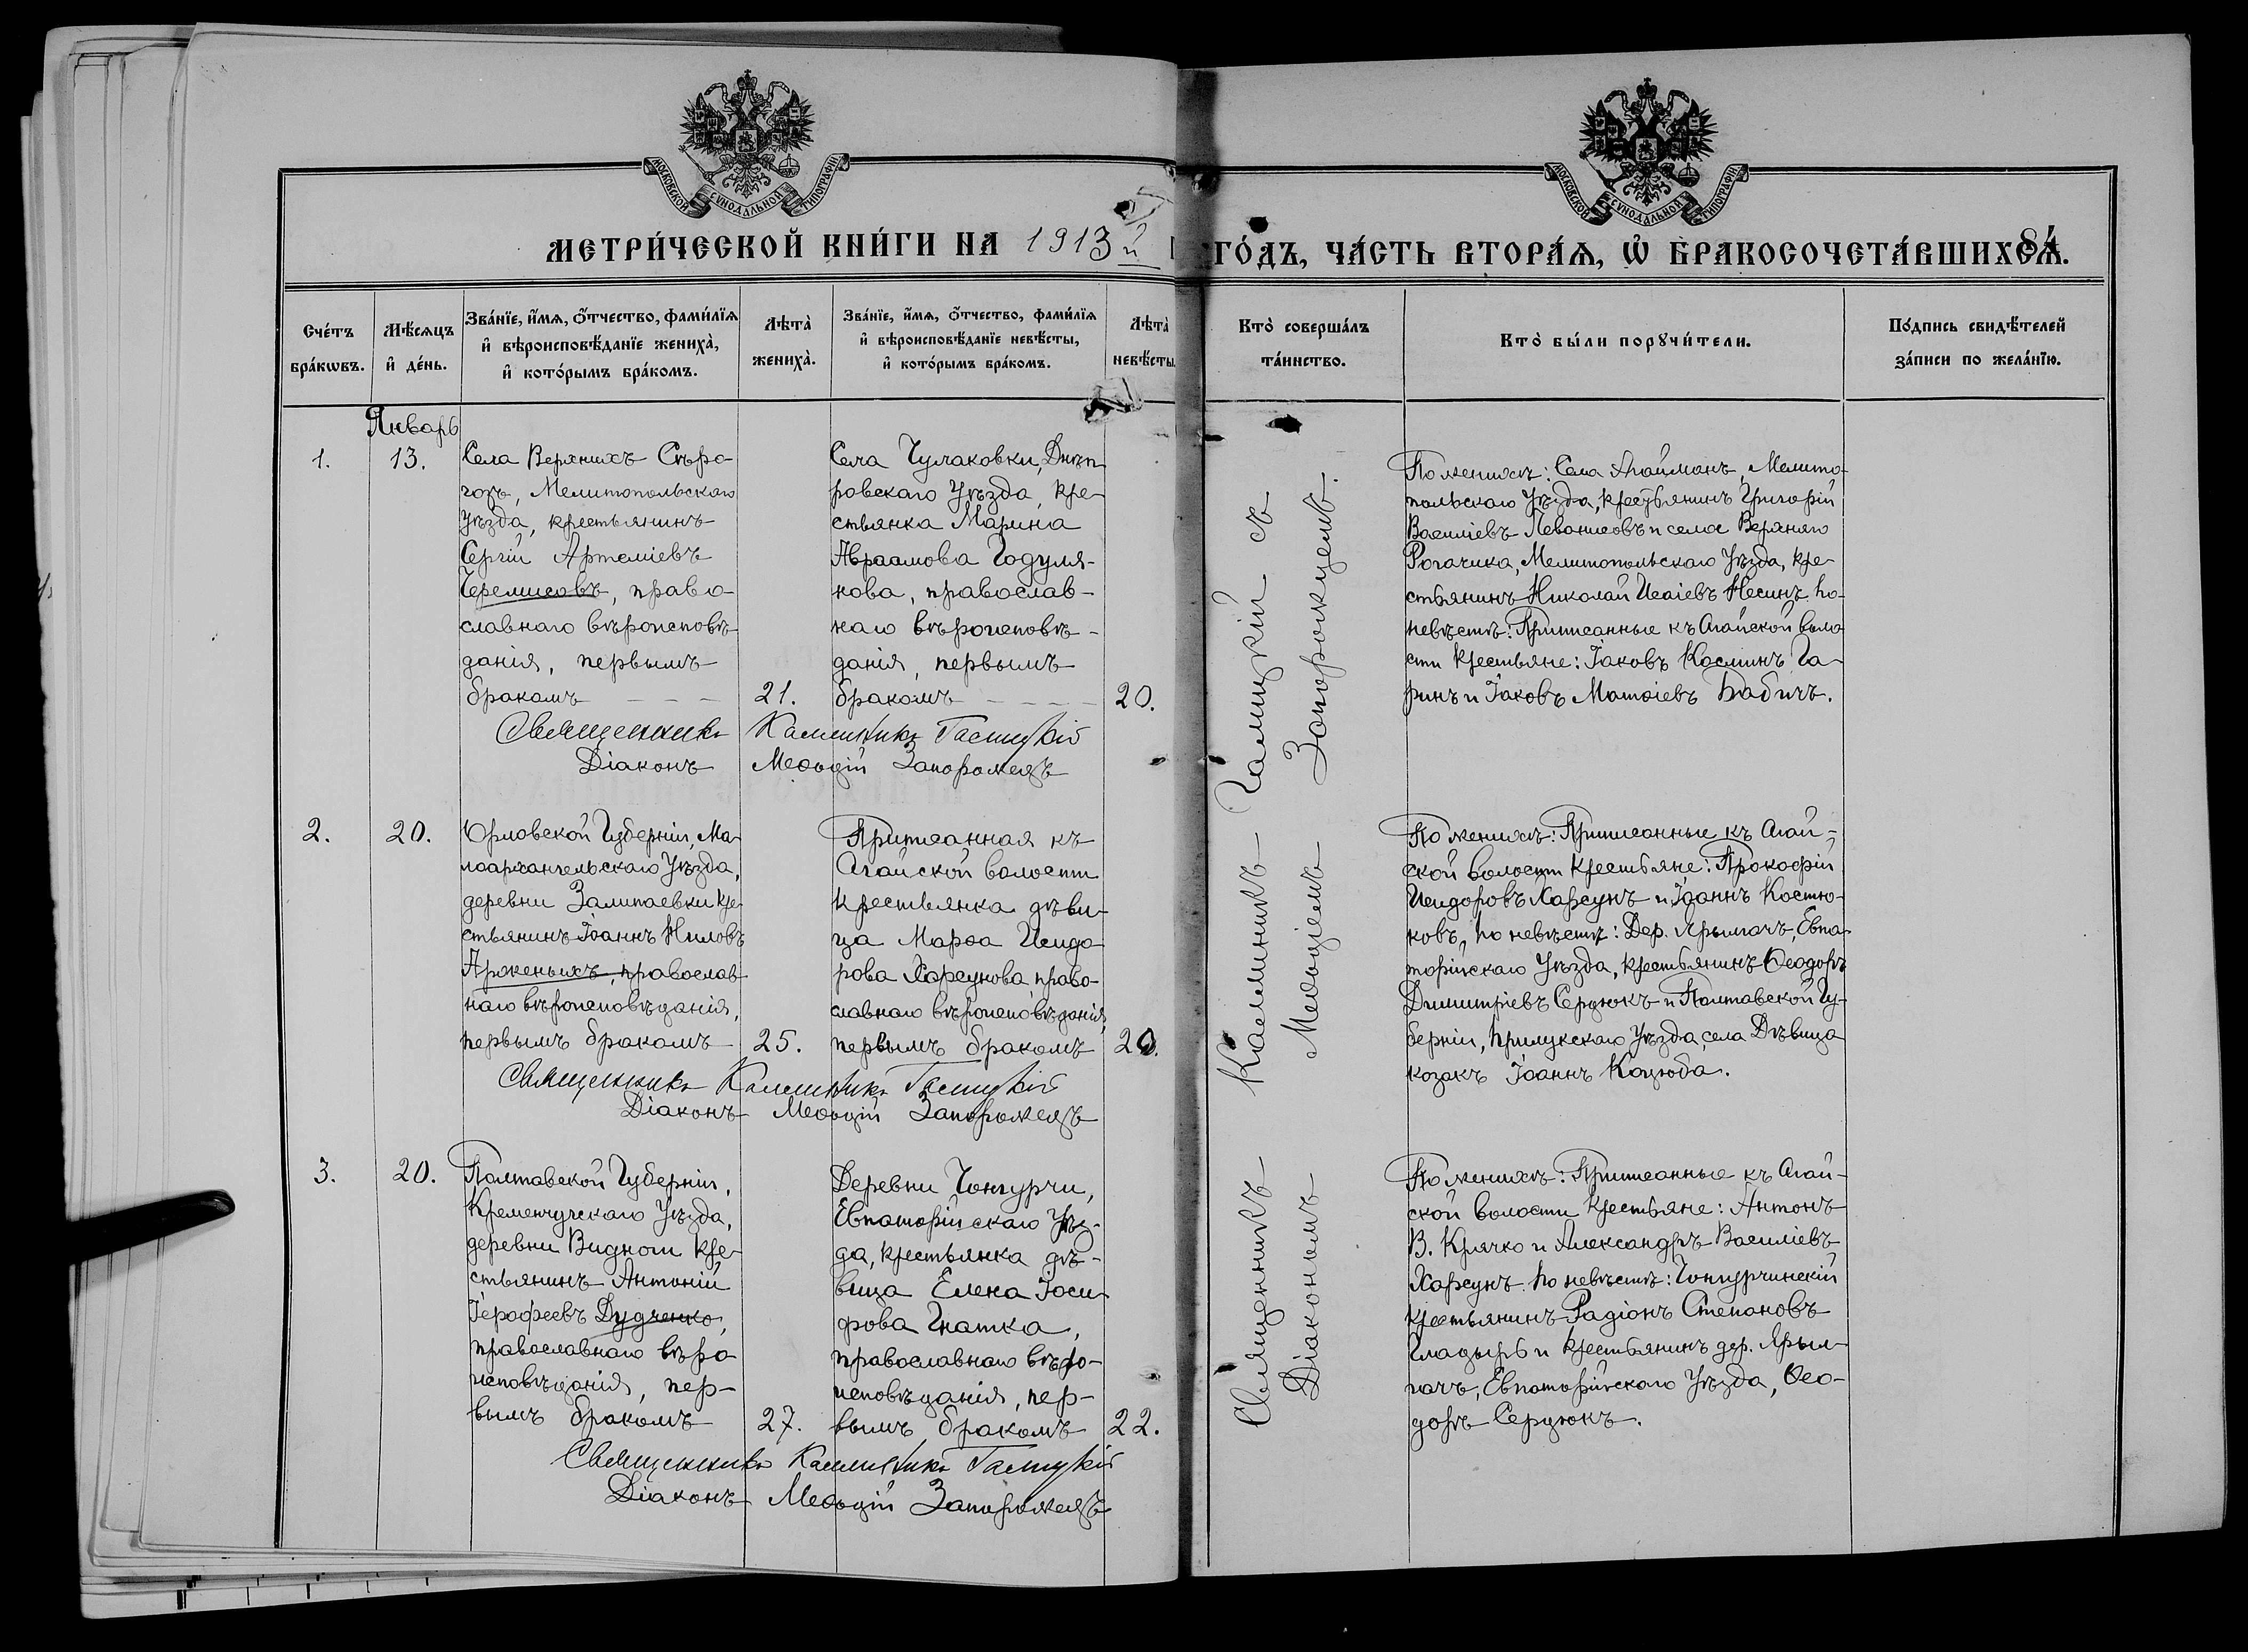 МОСКОВСКОЙ СѴНОДАЛЬНОЙ ТИПОГРАФІИ
МОСКОВСКОЙ СѴНОДАЛЬНОЙ ТИПОГРАФІИ
МЕТРИ́ЧЕСКОЙ КНИ́ГИ НА 1913 й ГО́ДЪ, ЧА́СТЬ ВТОРА́Ѧ, Ѽ БРАКОСОЧЕТА́ВШИХСѦ.
84
Сче́тъ бра́кѡвъ.
Мѣ́сяцъ и҆ де́нь.
Зва́нїе, и҆́мѧ, ѻ҆́тчество, фами́лїѧ
и҆ вѣроисповѣ́данїе жениха̀,
и҆ кото́рымъ бра́комъ.
Лѣта̀ жениха̀.
Зва́нїе, и҆́мѧ, ѻ҆́тчество, фами́лїѧ
и҆ вѣроисповѣ́данїе невѣ́сты,
и҆ кото́рымъ бра́комъ.
Лѣта̀ невѣ́сты.
Кто̀ соверша́лъ та́инство.
Кто̀ бы́ли порꙋчи́тели.
По́дпись свидѣ́телей
за́писи по жела́нїю.
Январь
1.
13.
Села Верхнихъ Сѣро-
гозъ, Мелитопольскаго
Уѣзда, крестьянинъ
Сергій Артеміевъ
Черемисовъ, право-
славнаго вѣроисповѣ-
данія, первымъ
бракомъ
21.
Села Чулаковки, Днѣп-
ровскаго Уѣзда, кре-
стьянка Марина
Авраамова Годуля-
нова, православ-
наго вѣроисповѣ-
данія, первымъ
бракомъ
20.
Священникъ Каллиникъ Галицкій
Діаконъ Меѳодій Запорожецъ
По женихѣ: Села Агайманъ, Мелито-
польскаго Уѣзда, крестьянинъ Григорій
Василіевъ и села Верхняго
Рогачика, Мелитопольскаго Уѣзда, кре-
стьянинъ Николай Исаіевъ Несинъ по
невѣстѣ: Приписанные къ Агайской воло-
сти крестьяне: Іаковъ Косминъ Га-
ринъ и Іаковъ Матѳіевъ Бабичъ.
2.
20.
Орловской Губерніи, Ма-
лоархангельскаго Уѣзда,
деревни Залипаевки кре-
стьянинъ Іоаннъ Ниловъ
Арженыхъ, православ-
наго вѣроисповѣданія,
первымъ бракомъ
25.
Приписанная къ
Агайской волости
крестьянка дѣви-
ца Марѳа Исидо-
рова Харсунова право-
славнаго вѣроисповѣданія,
первымъ бракомъ
20.
Священникъ Каллиникъ Галицкій
Діаконъ Меѳодій Запорожецъ
По женихѣ: Приписанные къ Агай-
ской волости крестьяне: Прокофій
Исидоровъ Харсунъ и Іоаннъ Костю-
ковъ, по невѣстѣ: Дер. Ярылгачъ, Евпа-
торійскаго Уѣзда, крестьянинъ Ѳеодоръ
Димитріевъ Сердюкъ и Полтавской Гу-
берніи, Прилукскаго Уѣзда, села Дѣвица
козакъ Іоаннъ Коцюба.
3.
20.
Полтавской Губерніи,
Кременчугскаго Уѣзда,
деревни Видной кре-
стьянинъ Антоній
Іерофеевъ Дудченко,
православнаго вѣро-
исповѣданія, пер-
вымъ бракомъ
27.
Деревни Чонгурчи,
Евпаторійскаго Уѣз-
да, крестьянка дѣ-
вица Елена Іоси-
фова Гнатка,
православнаго вѣро-
исповѣданія, пер-
вымъ бракомъ
22.
Священникъ Каллиникъ Галицкій
Діаконъ Меѳодій Запорожецъ
По женихѣ: Приписанные къ Агай-
ской волости крестьяне: Антонъ
В. Крячко и Александръ Василіевъ
Харсунъ по невѣстѣ: Чонгурчинскій
крестьянинъ Радіонъ Степановъ
Гладырь и крестьянинъ дер. Ярыл-
гачъ, Евпаторійскаго Уѣзда, Ѳео-
доръ Сердюкъ.
Священникъ Каллиникъ Галицкій съ
Діакономъ Меѳодіемъ Запорожцемъ.